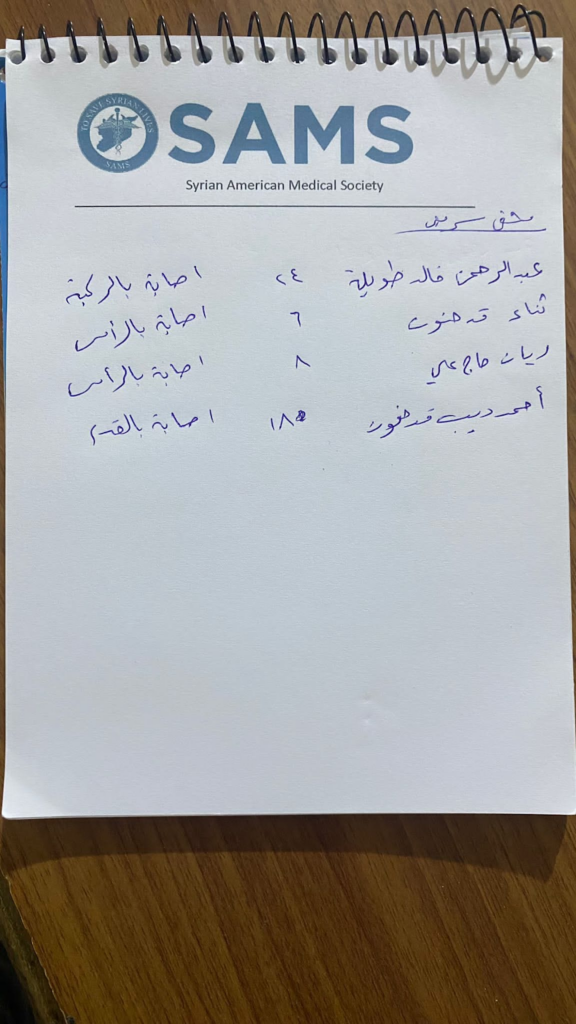 TO SAVE SYRIAN LIVES
SAMS
SAMS
Syrian American Medical Society
مشفى سرمين
عبدالرحمن خالد طويلة ٢٤ اصابة بالركبة
ثناء قدحنون ٦ اصابة بالرأس
ريان حاج علي ٨ اصابة بالرأس
أحمد ديب ١٨ اصابة بالقدم